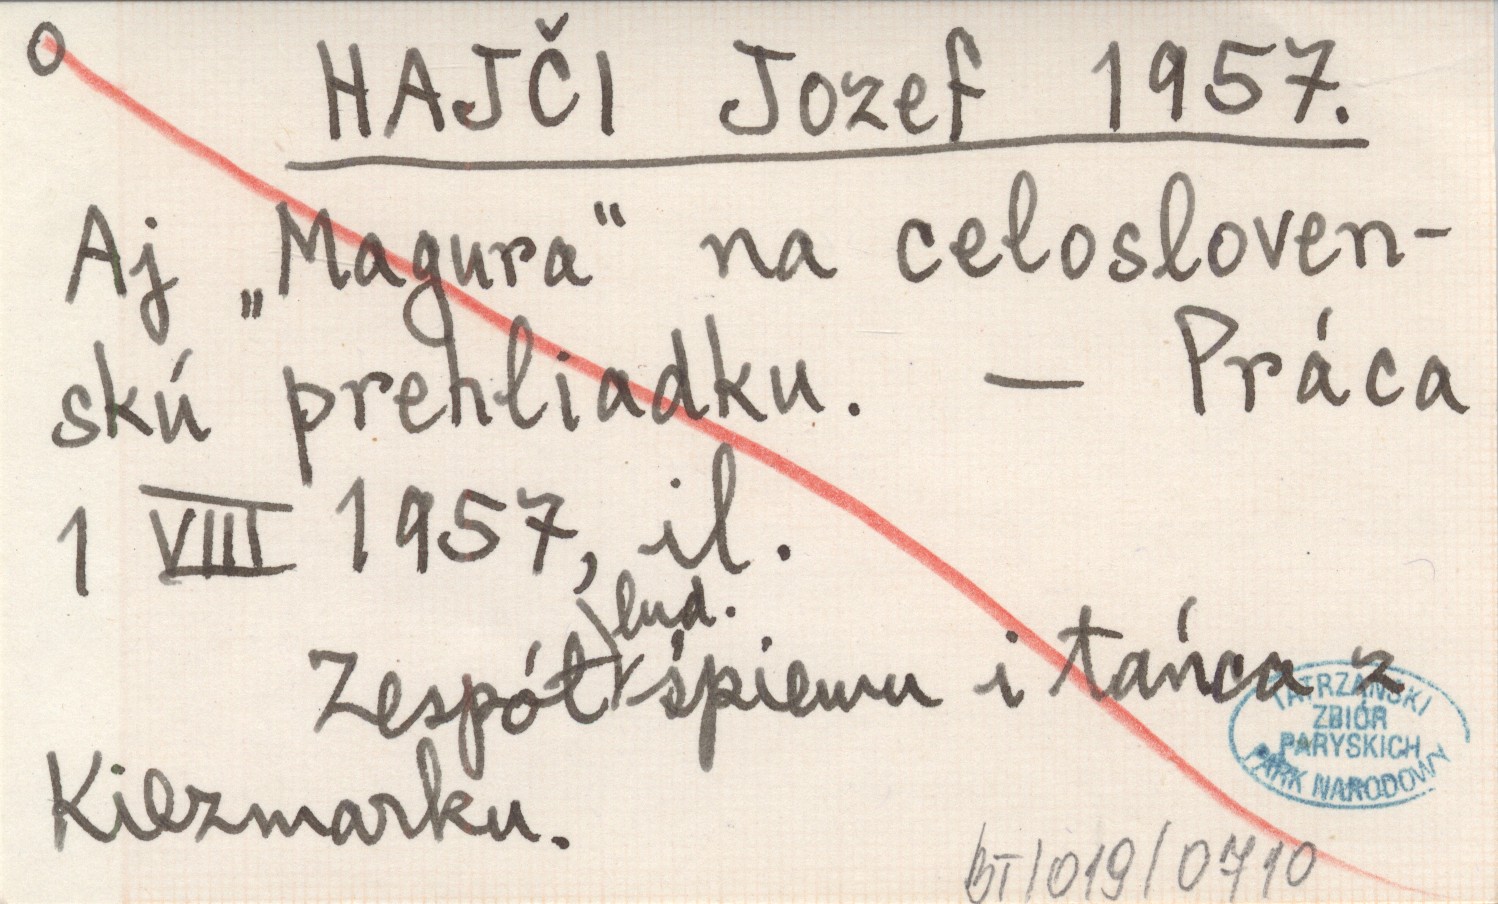 O
HAJČI Jozef 1957.
Aj „Magura“ na celosloven-
skú prehliadku. — Práca
1 VIII 1957, il.
lud.
Zespół śpiewu i tańca z
Kiezmarku.
TATRZAŃSKI
ZBIÓR
PARYSKICH
PARK NARODOWY
BT/019/0710